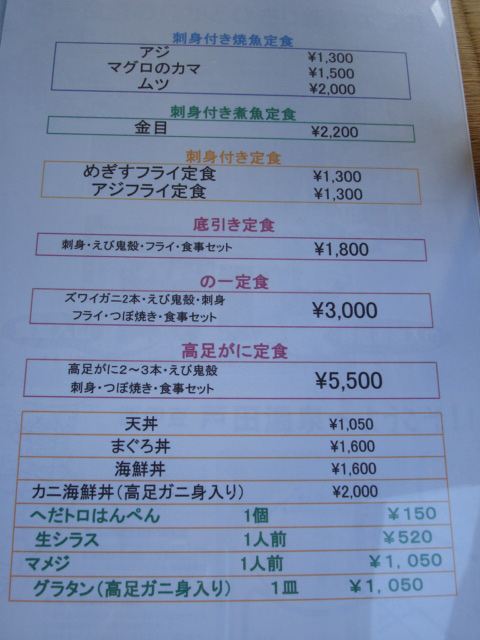 刺身付き焼魚定食
アジ ¥1,300
マグロのカマ ¥1,500
ムツ ¥2,000
刺身付き煮魚定食
金目 ¥2,200
刺身付き定食
めぎすフライ定食 ¥1,300
アジフライ定食 ¥1,300
底引き定食
刺身・えび鬼殻・フライ・食事セット ¥1,800
の一定食
ズワイガニ2本・えび鬼殻・刺身
フライ・つぼ焼き・食事セット ¥3,000
高足がに定食
高足がに2～3本・えび鬼殻
刺身・つぼ焼き・食事セット ¥5,500
天丼 ¥1,050
まぐろ丼 ¥1,600
海鮮丼 ¥1,600
カニ海鮮丼（高足ガニ身入り） ¥2,000
へだトロはんぺん 1個 ￥150
生シラス 1人前 ￥520
マメジ 1人前 ￥1，050
グラタン（高足ガニ身入り） 1皿 ￥1，050